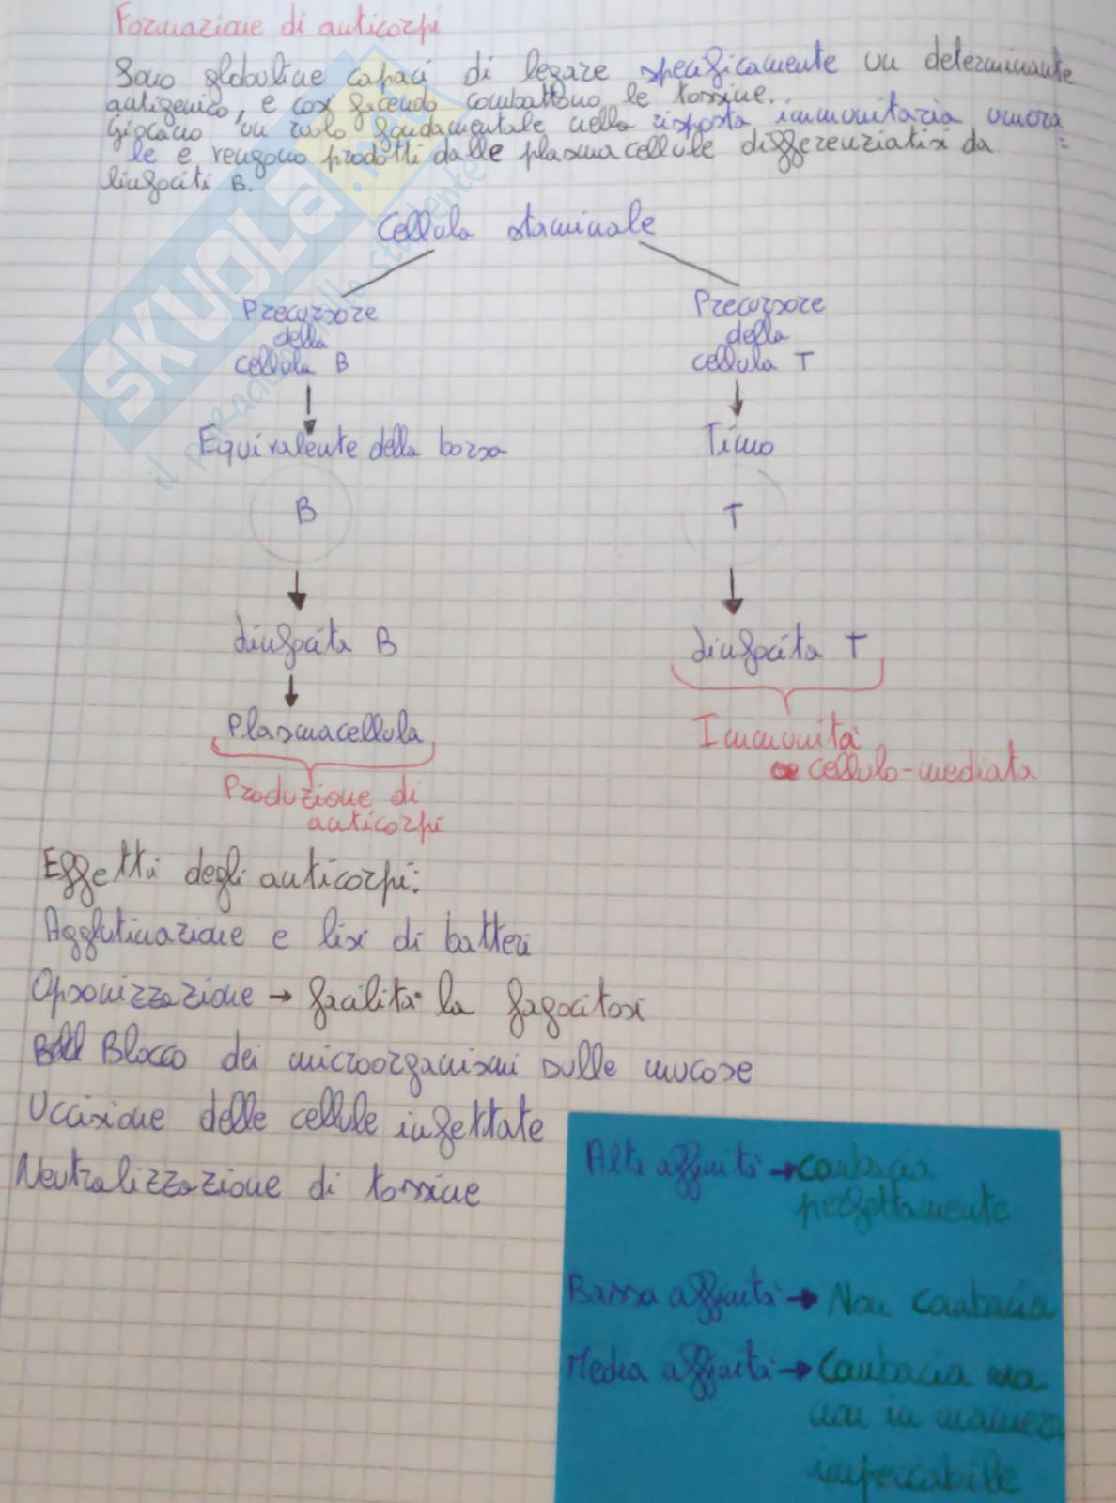 Formazione di anticorpi
Sono globuline capaci di legare specificamente un determinante
antigenico, e così facendo combattono le tossine.
Giocano un ruolo fondamentale nella risposta immunitaria umora
le e vengono prodotti dalle plasmacellule differenziatisi da
linfociti B.
SKUOLA.NET
Cellula staminale
Precursore
della
cellula B
Precursore
della
cellula T
Equivalente della borsa
Timo
B
T
Linfocita B
Linfocita T
Plasmacellula
Immunità
cellulo-mediata
Produzione di
anticorpi
Effetti degli anticorpi:
Agglutinazione e lisi di batteri
Opsonizzazione → facilità la fagocitosi
Blocco dei microorganismi sulle mucose
Uccisione delle cellule infettate
Neutralizzazione di tossine
Alta affinità → combacia
perfettamente
Bassa affinità → Non combacia
Media affinità → Combacia ma
non in maniera
impeccabile